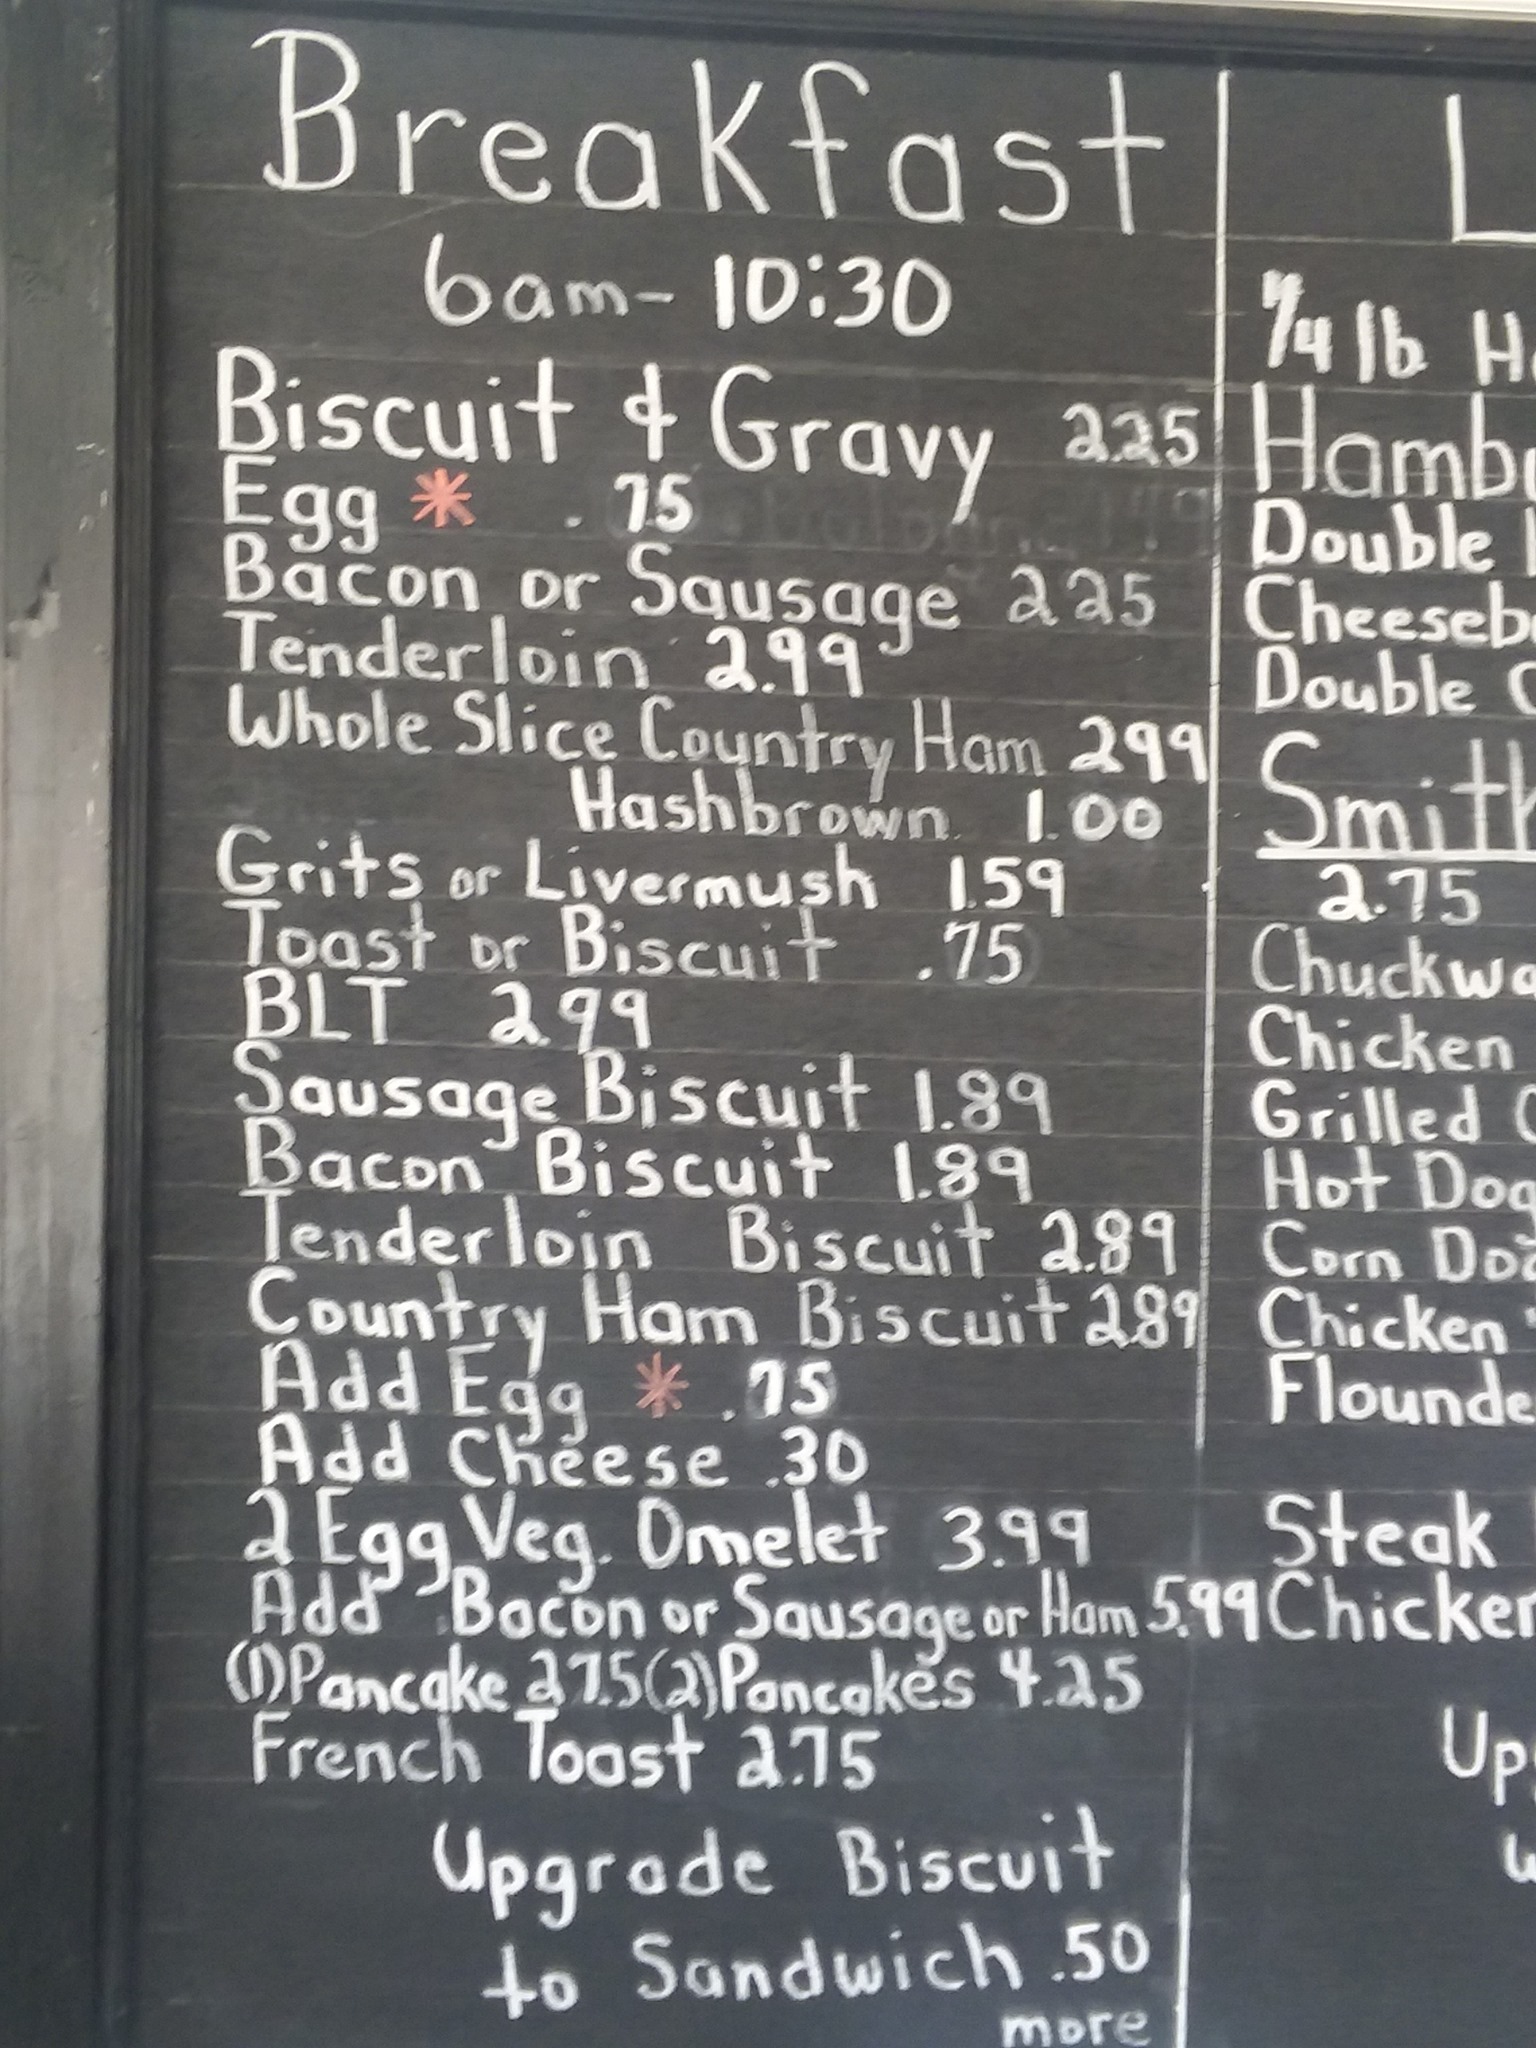 Breakfast
6am- 10:30
Biscuit & Gravy 2.25
Egg * .75
Bacon or Sausage 2 25
Tenderloin 2.99
Whole Slice Country Ham 299
Hashbrown 1.00
Grits or Livermush 1.59
Toast or Biscuit .75
BLT 2.99
Sausage Biscuit 1.89
Bacon Biscuit 1.89
Tenderloin Biscuit 2.89
Country Ham Biscuit 289
Add Egg * .75
Add Cheese .30
2 Egg Veg. Omelet 3.99
Add Bacon or Sausage or Ham 5.99
(1) Pancake 2.75 (2) Pancakes 4.25
French Toast 2.75
Upgrade Biscuit
to Sandwich .50
more
L
1/4 lb H
Hamb
Double
Cheeseb
Double
Smith
2.75
Chuckwa
Chicken
Grilled
Hot Dog
Corn Do
Chicken
Flounde
Steak
Chicken
Up
w